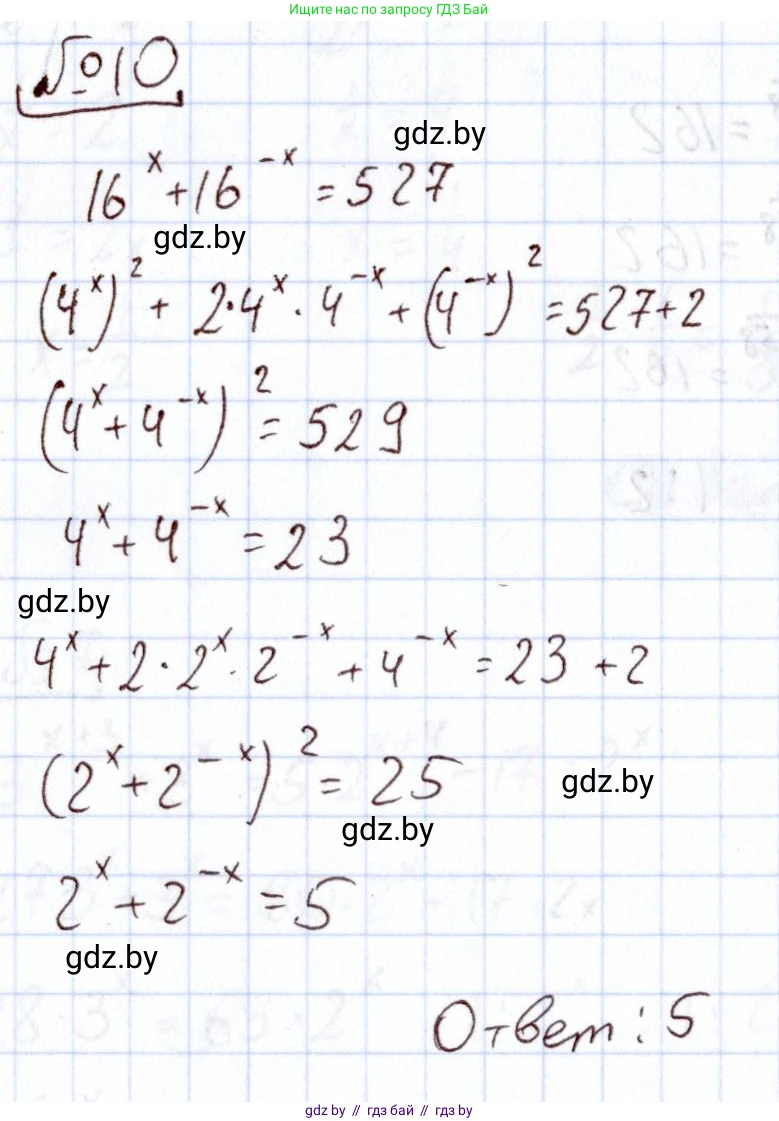 Ищите нас по запросу ГДЗ Бай
№10
gdz.by
16^x + 16^{-x} = 527
gdz.by
(4^x)^2 + 2·4^x · 4^{-x} + (4^{-x})^2 = 527+2
(4^x + 4^{-x})^2 = 529
4^x + 4^{-x} = 23
gdz.by
4^x + 2·2^x·2^{-x} + 4^{-x} = 23 + 2
(2^x + 2^{-x})^2 = 25
gdz.by
gdz.by
2^x + 2^{-x} = 5
gdz.by
Ответ: 5
gdz.by // гдз бай // гдз by